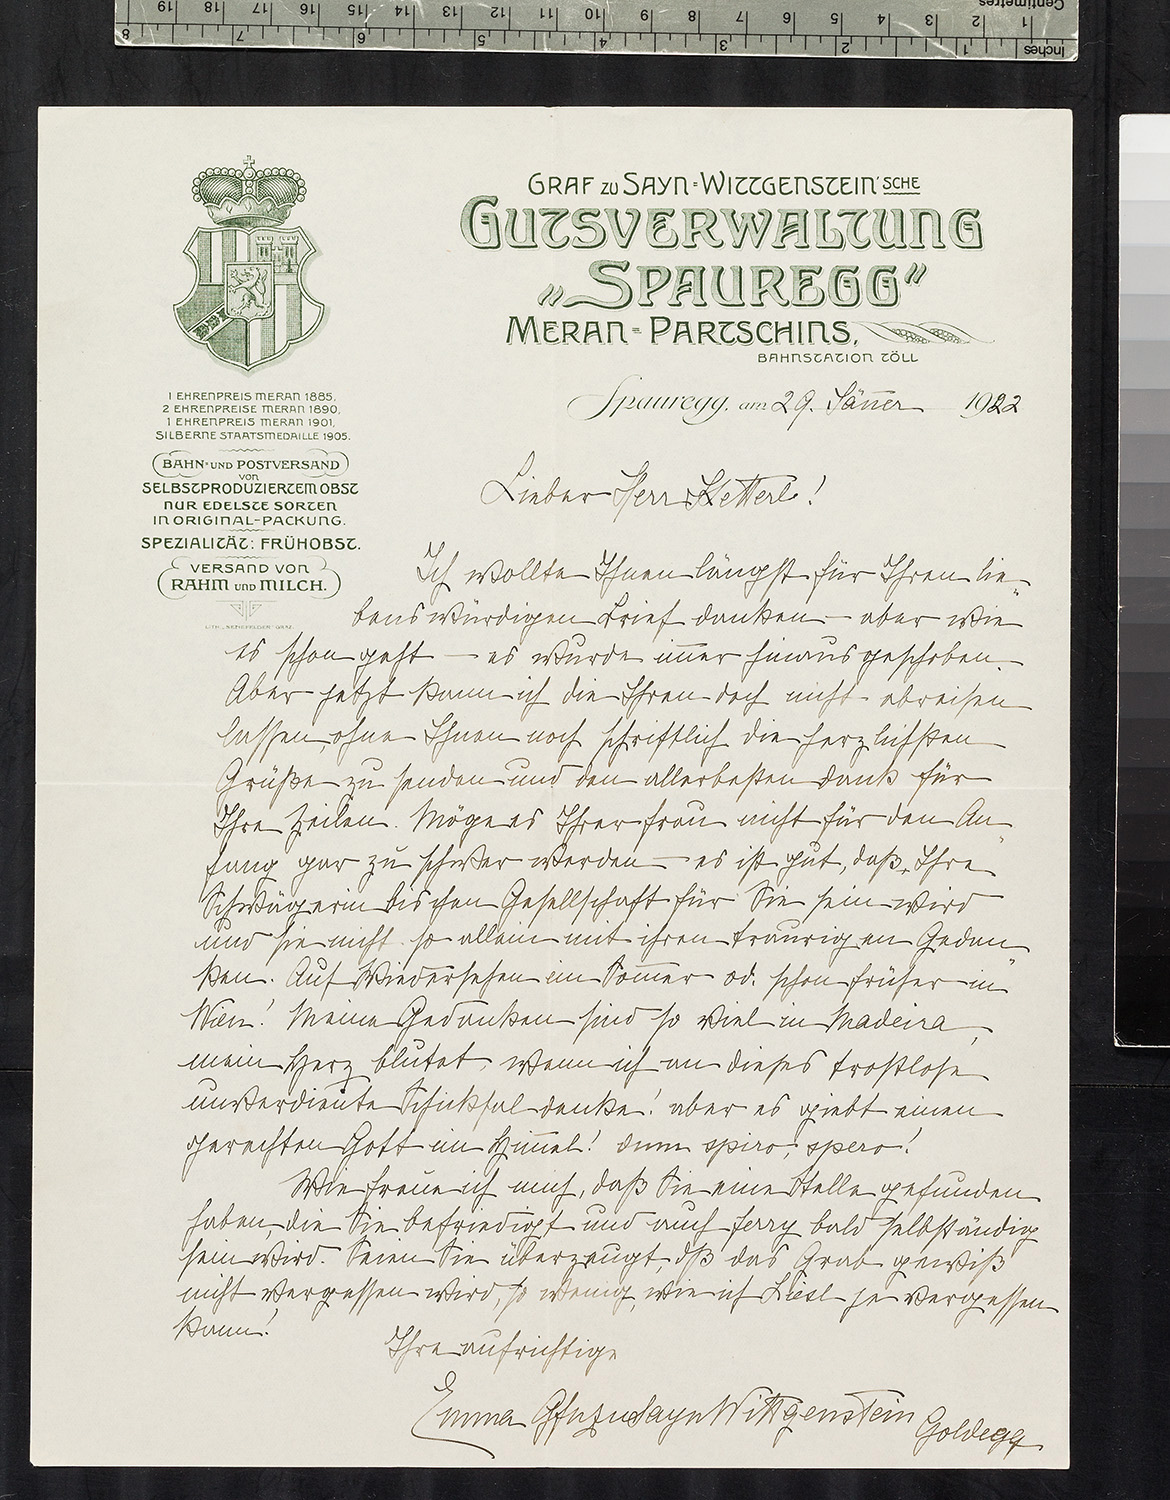 Inches 1 2 3 4 5 6 7 8
Centimetres 1 2 3 4 5 6 7 8 9 10 11 12 13 14 15 16 17 18 19
GRAF ZU SAYN=WITTGENSTEIN'SCHE
GUTSVERWALTUNG
„SPAUREGG“
MERAN=PARTSCHINS,
BAHNSTATION TÖLL
1 EHRENPREIS MERAN 1885,
2 EHRENPREISE MERAN 1890,
1 EHRENPREIS MERAN 1901,
SILBERNE STAATSMEDAILLE 1905.
BAHN- UND POSTVERSAND
VON
SELBSTPRODUZIERTEM OBST
NUR EDELSTE SORTEN
IN ORIGINAL-PACKUNG.
SPEZIALITÄT: FRÜHOBST.
VERSAND VON
RAHM UND MILCH.
LITH. „SENEFELDER“ GRAZ.
Spauregg, am 29. Jäner 1922
Lieber Herr Ketterl!
Ich wollte Ihnen längst für Ihren lie-
benswürdigen Brief danken – aber wie
es schon geht – es wurde immer hinausgeschoben.
Aber jetzt kann ich die Ihren doch nicht abreisen
lassen, ohne Ihnen noch schriftlich die herzlichsten
Grüße zu senden und den allerbesten Dank für
Ihre Zeilen. Möge es Ihrer Frau nicht für den An-
fang gar zu schwer werden – es ist gut, daß Ihre
Schwägerin bischen Gesellschaft für Sie sein wird
und sie nicht so allein mit ihren traurigen Gedan-
ken. Auf Wiedersehen im Sommer od. schon früher in
Wien! Meine Gedanken sind so viel in Madeira,
mein Herz blutet, wenn ich an dieses trostlose
unverdiente Schicksal denke! aber es giebt einen
gerechten Gott im Himmel! dum spiro, spero!
Wie freue ich mich, daß Sie eine Stelle gefunden
haben, die Sie befriedigt und auch Ferry bald selbständig
sein wird. Seien Sie überzeugt, dß das Grab gewiß
nicht vergessen wird, so wenig, wie ich Liesl je vergessen
kann!
Ihre aufrichtige
Emma Gfin zu Sayn Wittgenstein
Goldegg